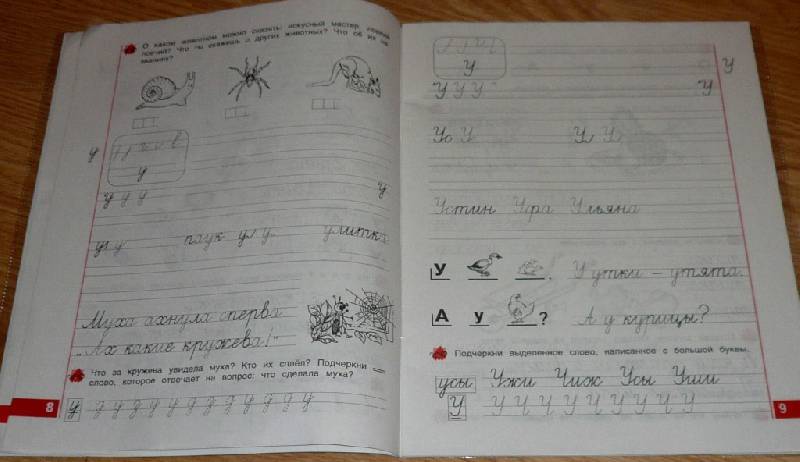 О каком животном можно сказать: искусный мастер
Что ты скажешь о других животных? Что об их
у
у
у у у
у
уг у паук ул у улитка
Муха ахнула сперва
„Ах какие кружева!"
Что за кружева увидела муха? Кто их сплёл? Подчеркни
слово, которое отвечает на вопрос: что сделала муха?
8 у у у у у у у у у у у у у
У
У
У У У
У
Ус У Ул У
Устин Ура Ульяна
У . У утки – утята.
А у ? А у курицы?
Подчеркни выделенное слово, написанное с большой буквы.
усы Ужи Чиж Усы Уши
У У Ч Ч У Ч У У У Ч У 9